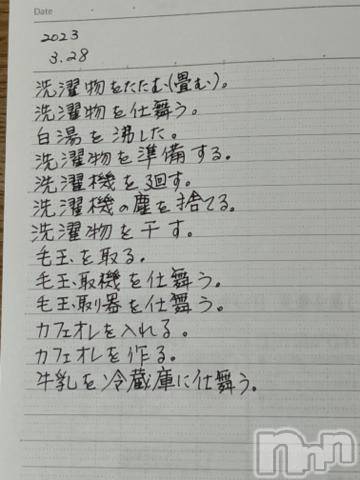 Date
2023
3.28
洗濯物をたたむ(畳む)。
洗濯物を仕舞う。
白湯を沸した。
洗濯物を準備する。
洗濯機を廻す。
洗濯機の塵を捨てる。
洗濯物を干す。
毛玉を取る。
毛玉取機を仕舞う。
毛玉取り器を仕舞う。
カフェオレを入れる。
カフェオレを作る。
牛乳を冷蔵庫に仕舞う。
nnn